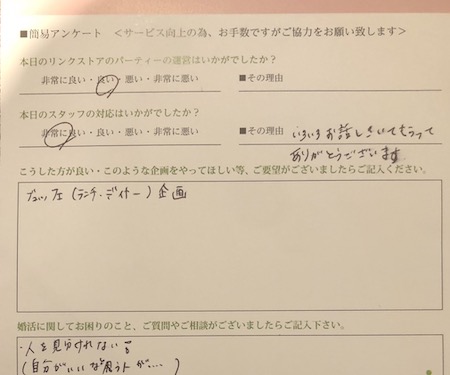 ■簡易アンケート ＜サービス向上の為、お手数ですがご協力をお願い致します＞
本日のリンクストアのパーティーの運営はいかがでしたか？
非常に良い・良い・悪い・非常に悪い ■その理由
本日のスタッフの対応はいかがでしたか？
非常に良い・良い・悪い・非常に悪い ■その理由 いろいろお話しきいてもらって
ありがとうございます
こうした方が良い・このような企画をやってほしい等、ご要望がございましたらご記入ください。
ブュッフェ(ランチ・ディナー)企画
婚活に関してお困りのこと、ご質問やご相談がございましたらご記入下さい。
・人を見分けれない
(自分がいいな思う人が・・・・)